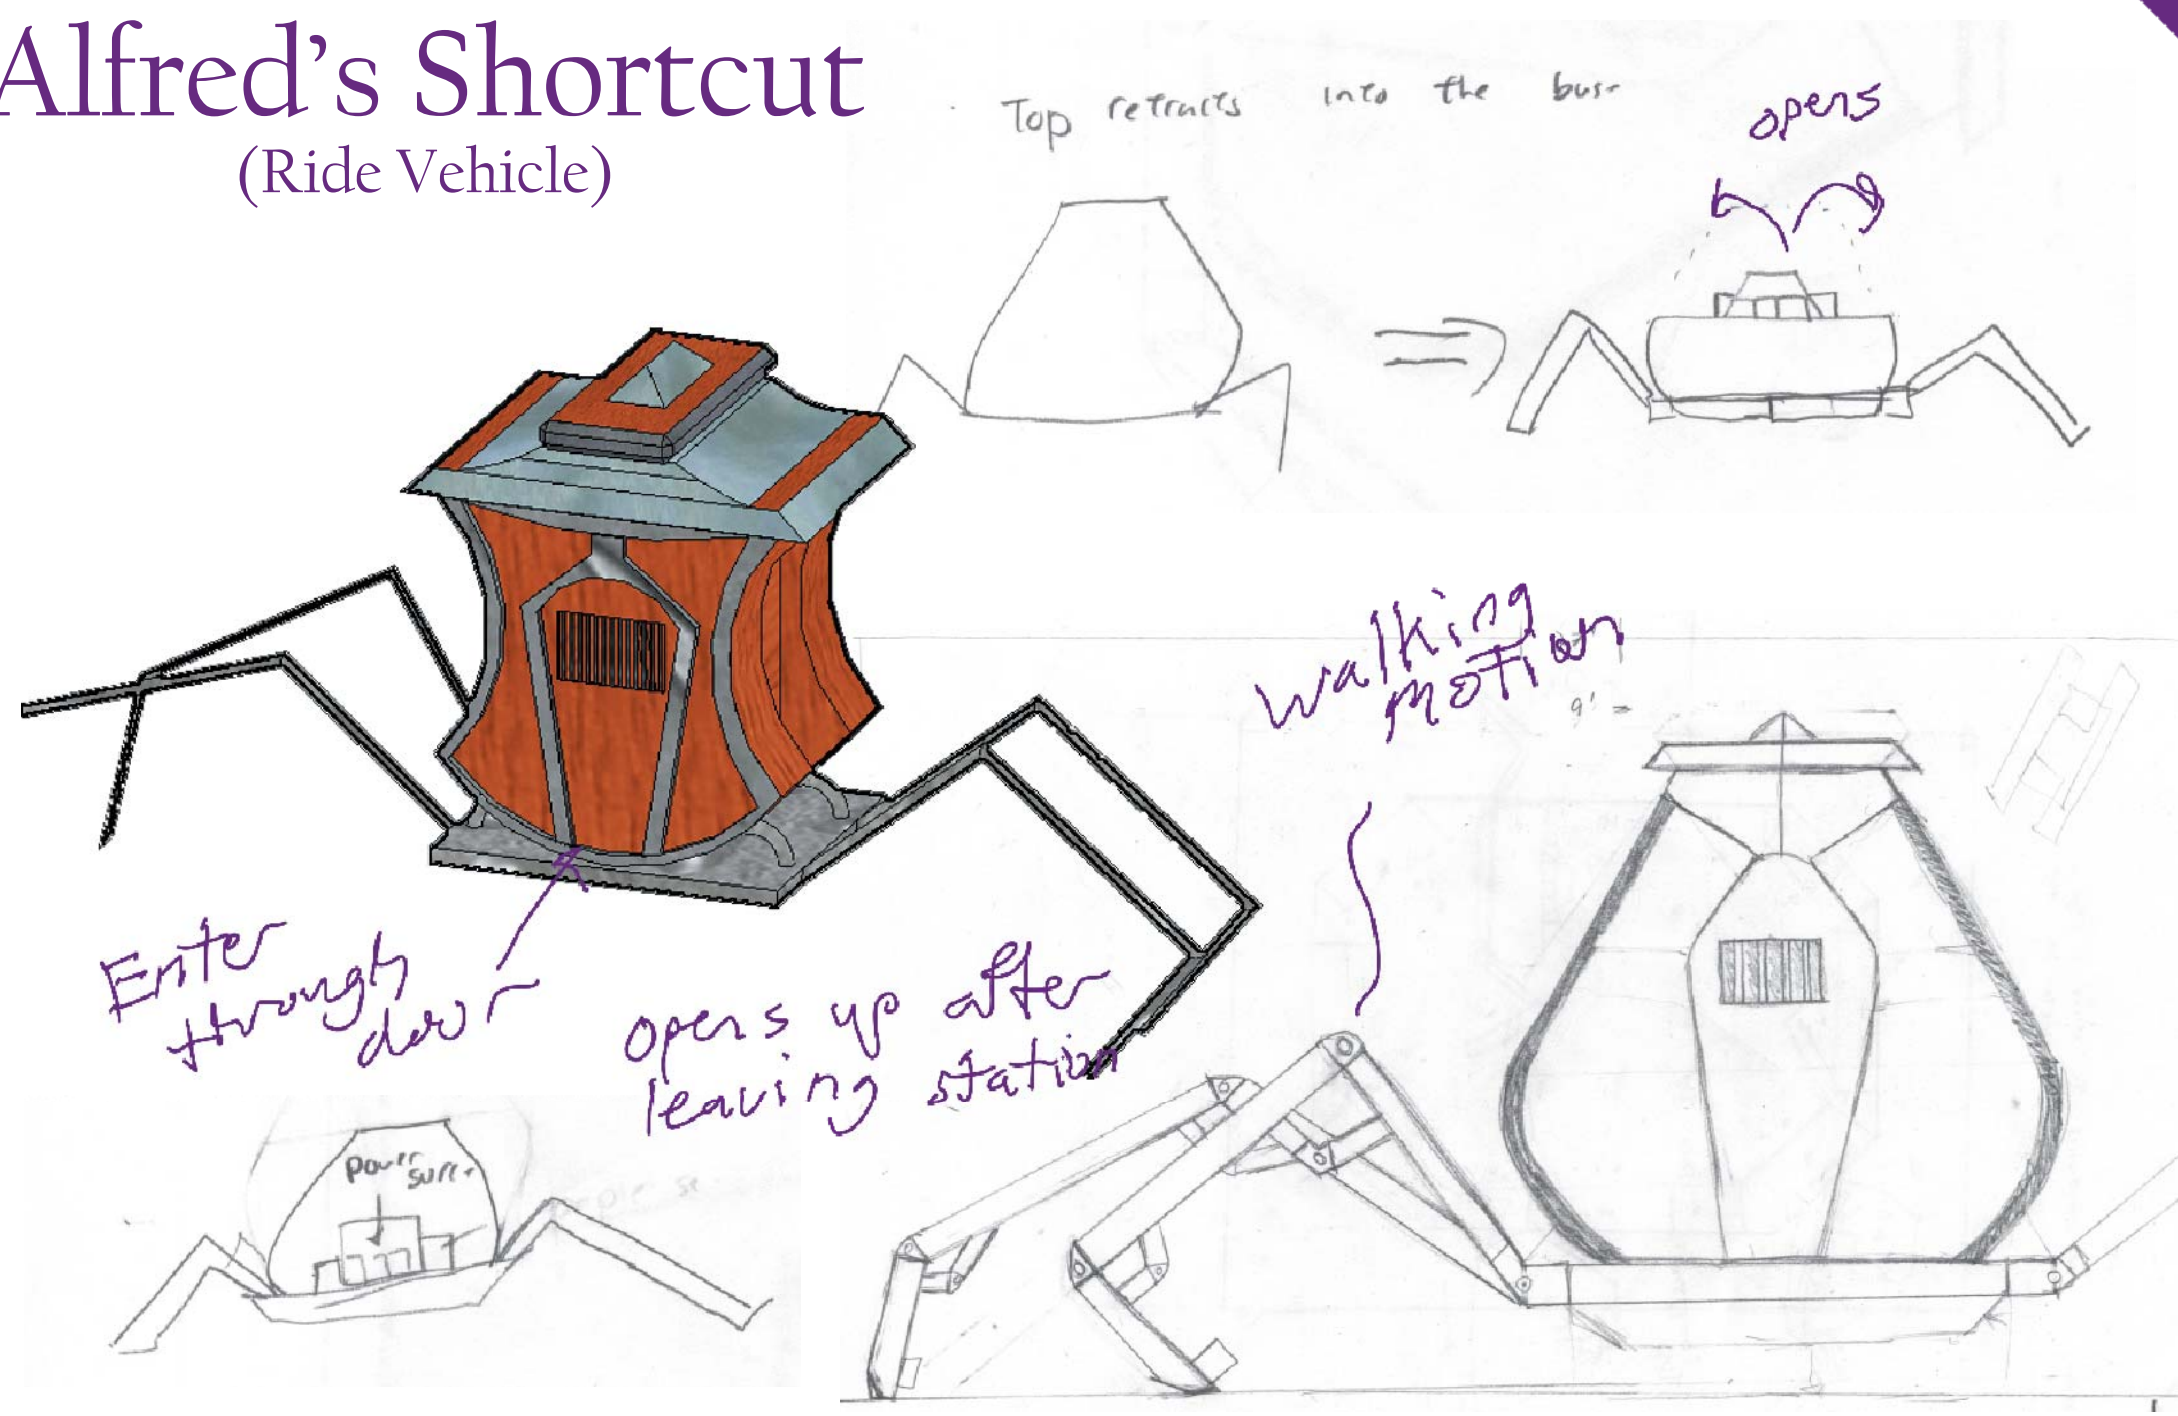 Alfred's Shortcut
(Ride Vehicle)
Top retracts into the
opens
walking
motion
9' =
Enter
through
door
opens up after
leaving station